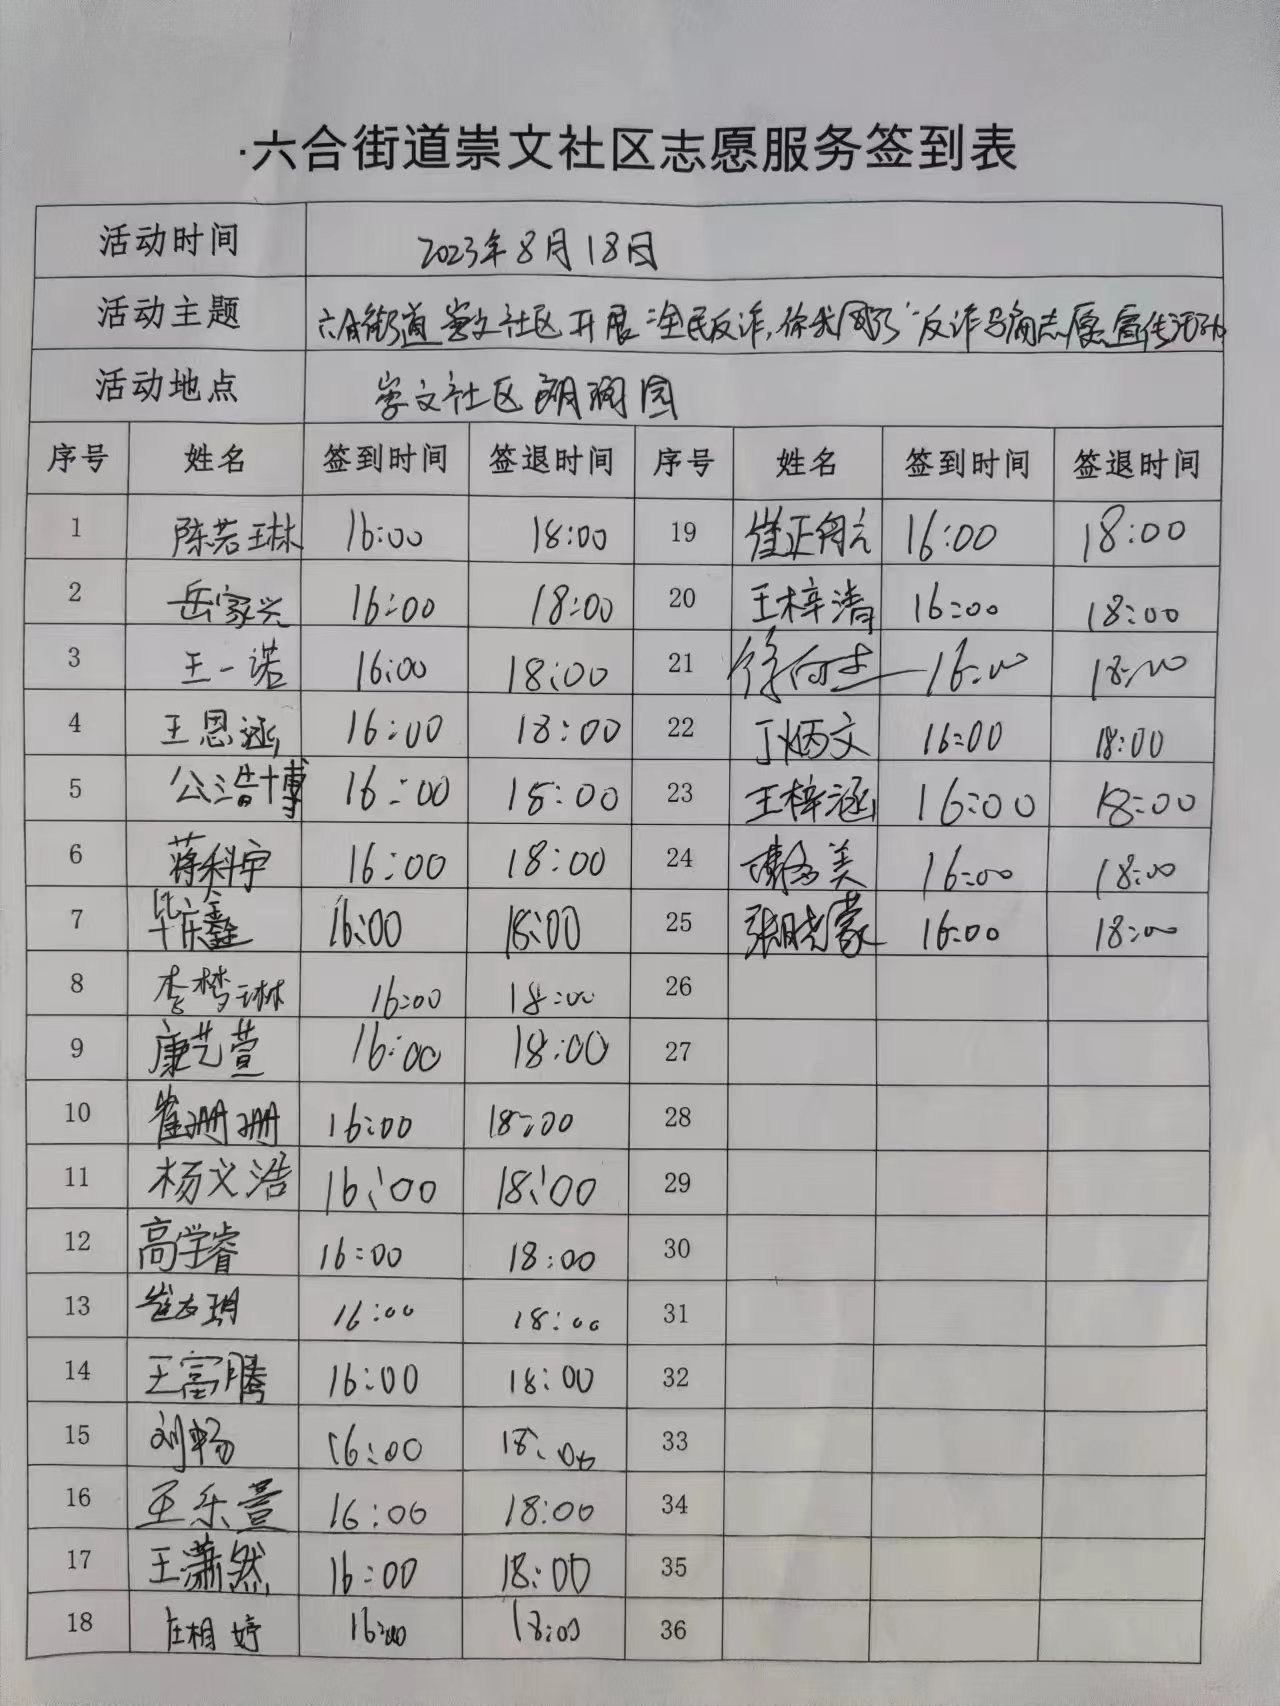 ·六合街道崇文社区志愿服务签到表
活动时间 2023年8月18日
活动主题 六合街道崇文社区开展"全民反诈,你我同行"反诈志愿宣传活动
活动地点 崇文社区朗润园
序号 姓名 签到时间 签退时间 序号 姓名 签到时间 签退时间
1 陈若琳 16:00 18:00 19 崔正 16:00 18:00
2 岳家兴 16:00 18:00 20 王梓清 16:00 18:00
3 王一诺 16:00 18:00 21 徐向杰 16:00 18:00
4 王恩涵 16:00 18:00 22 丁炳文 16:00 18:00
5 公浩博 16:00 18:00 23 王梓涵 16:00 18:00
6 蒋科宇 16:00 18:00 24 美 16:00 18:00
7 毕庆鑫 16:00 18:00 25 张晓蒙 16:00 18:00
8 李梦琳 16:00 18:00 26
9 康艺萱 16:00 18:00 27
10 崔珊珊 16:00 18:00 28
11 杨义浩 16:00 18:00 29
12 高学睿 16:00 18:00 30
13 崔友玥 16:00 18:00 31
14 王富腾 16:00 18:00 32
15 刘畅 16:00 18:00 33
16 王乐萱 16:00 18:00 34
17 王潇然 16:00 18:00 35
18 庄相婷 16:00 18:00 36